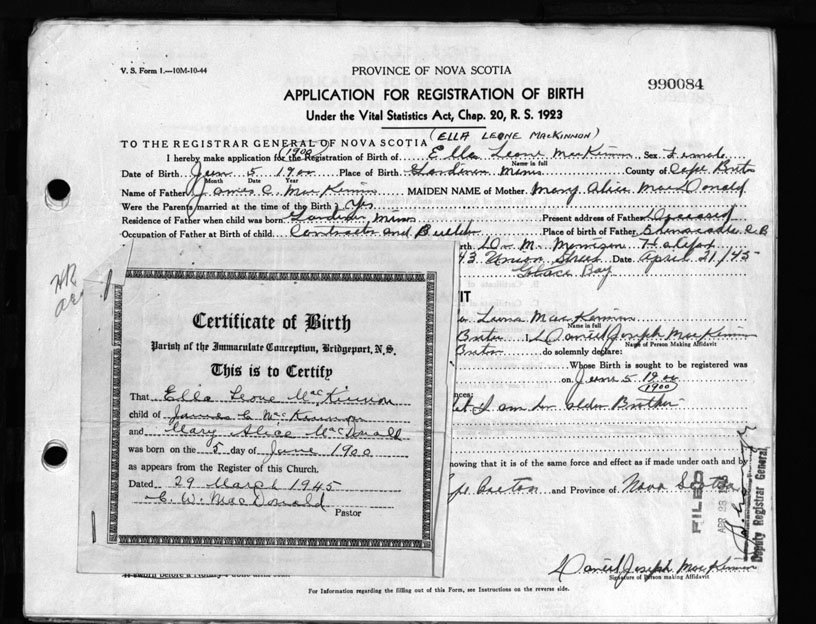 V. S. Form 1.—10M-10-44
PROVINCE OF NOVA SCOTIA
990084
APPLICATION FOR REGISTRATION OF BIRTH
Under the Vital Statistics Act, Chap. 20, R. S. 1923
(ELLA LEONE MACKINNON)
TO THE REGISTRAR GENERAL OF NOVA SCOTIA
(1900)
I hereby make application for the Registration of Birth of Ella Leone MacKinnon, Sex Female
Name in full
Date of Birth June 5 1900 Place of Birth Gardiner Mines County of Cape Breton
Month Date Year
Name of Father James C. MacKinnon MAIDEN NAME of Mother Mary Alice MacDonald
Were the Parents married at the time of the Birth? Yes
Residence of Father when child was born Gardiner Mines Present address of Father Deceased
Occupation of Father at Birth of child Contractor and Builder Place of birth of Father C.B.
Dr. M. Morrison Halifax
43 Union Street Date April 21/45
Glace Bay
Leona MacKinnon
Name in full
Breton I, Daniel Joseph MacKinnon
Name of Person Making Affidavit
Breton do solemnly declare:
Whose Birth is sought to be registered was
on June 5 1900
(1900)
that I am her older Brother
knowing that it is of the same force and effect as if made under oath and by
Cape Breton and Province of Nova Scotia
FILED
APR 28
Deputy Registrar General
Daniel Joseph MacKinnon
Signature of Person making Affidavit
For Information regarding the filling out of this Form, see Instructions on the reverse side.
Certificate of Birth
Parish of the Immaculate Conception, Bridgeport, N.S.
This is to Certify
That Ella Leone MacKinnon
child of James C MacKinnon
and Mary Alice MacDonald
was born on the 5 day of June 1900
as appears from the Register of this Church.
Dated 29 March 1945
C. W. MacDonald
Pastor